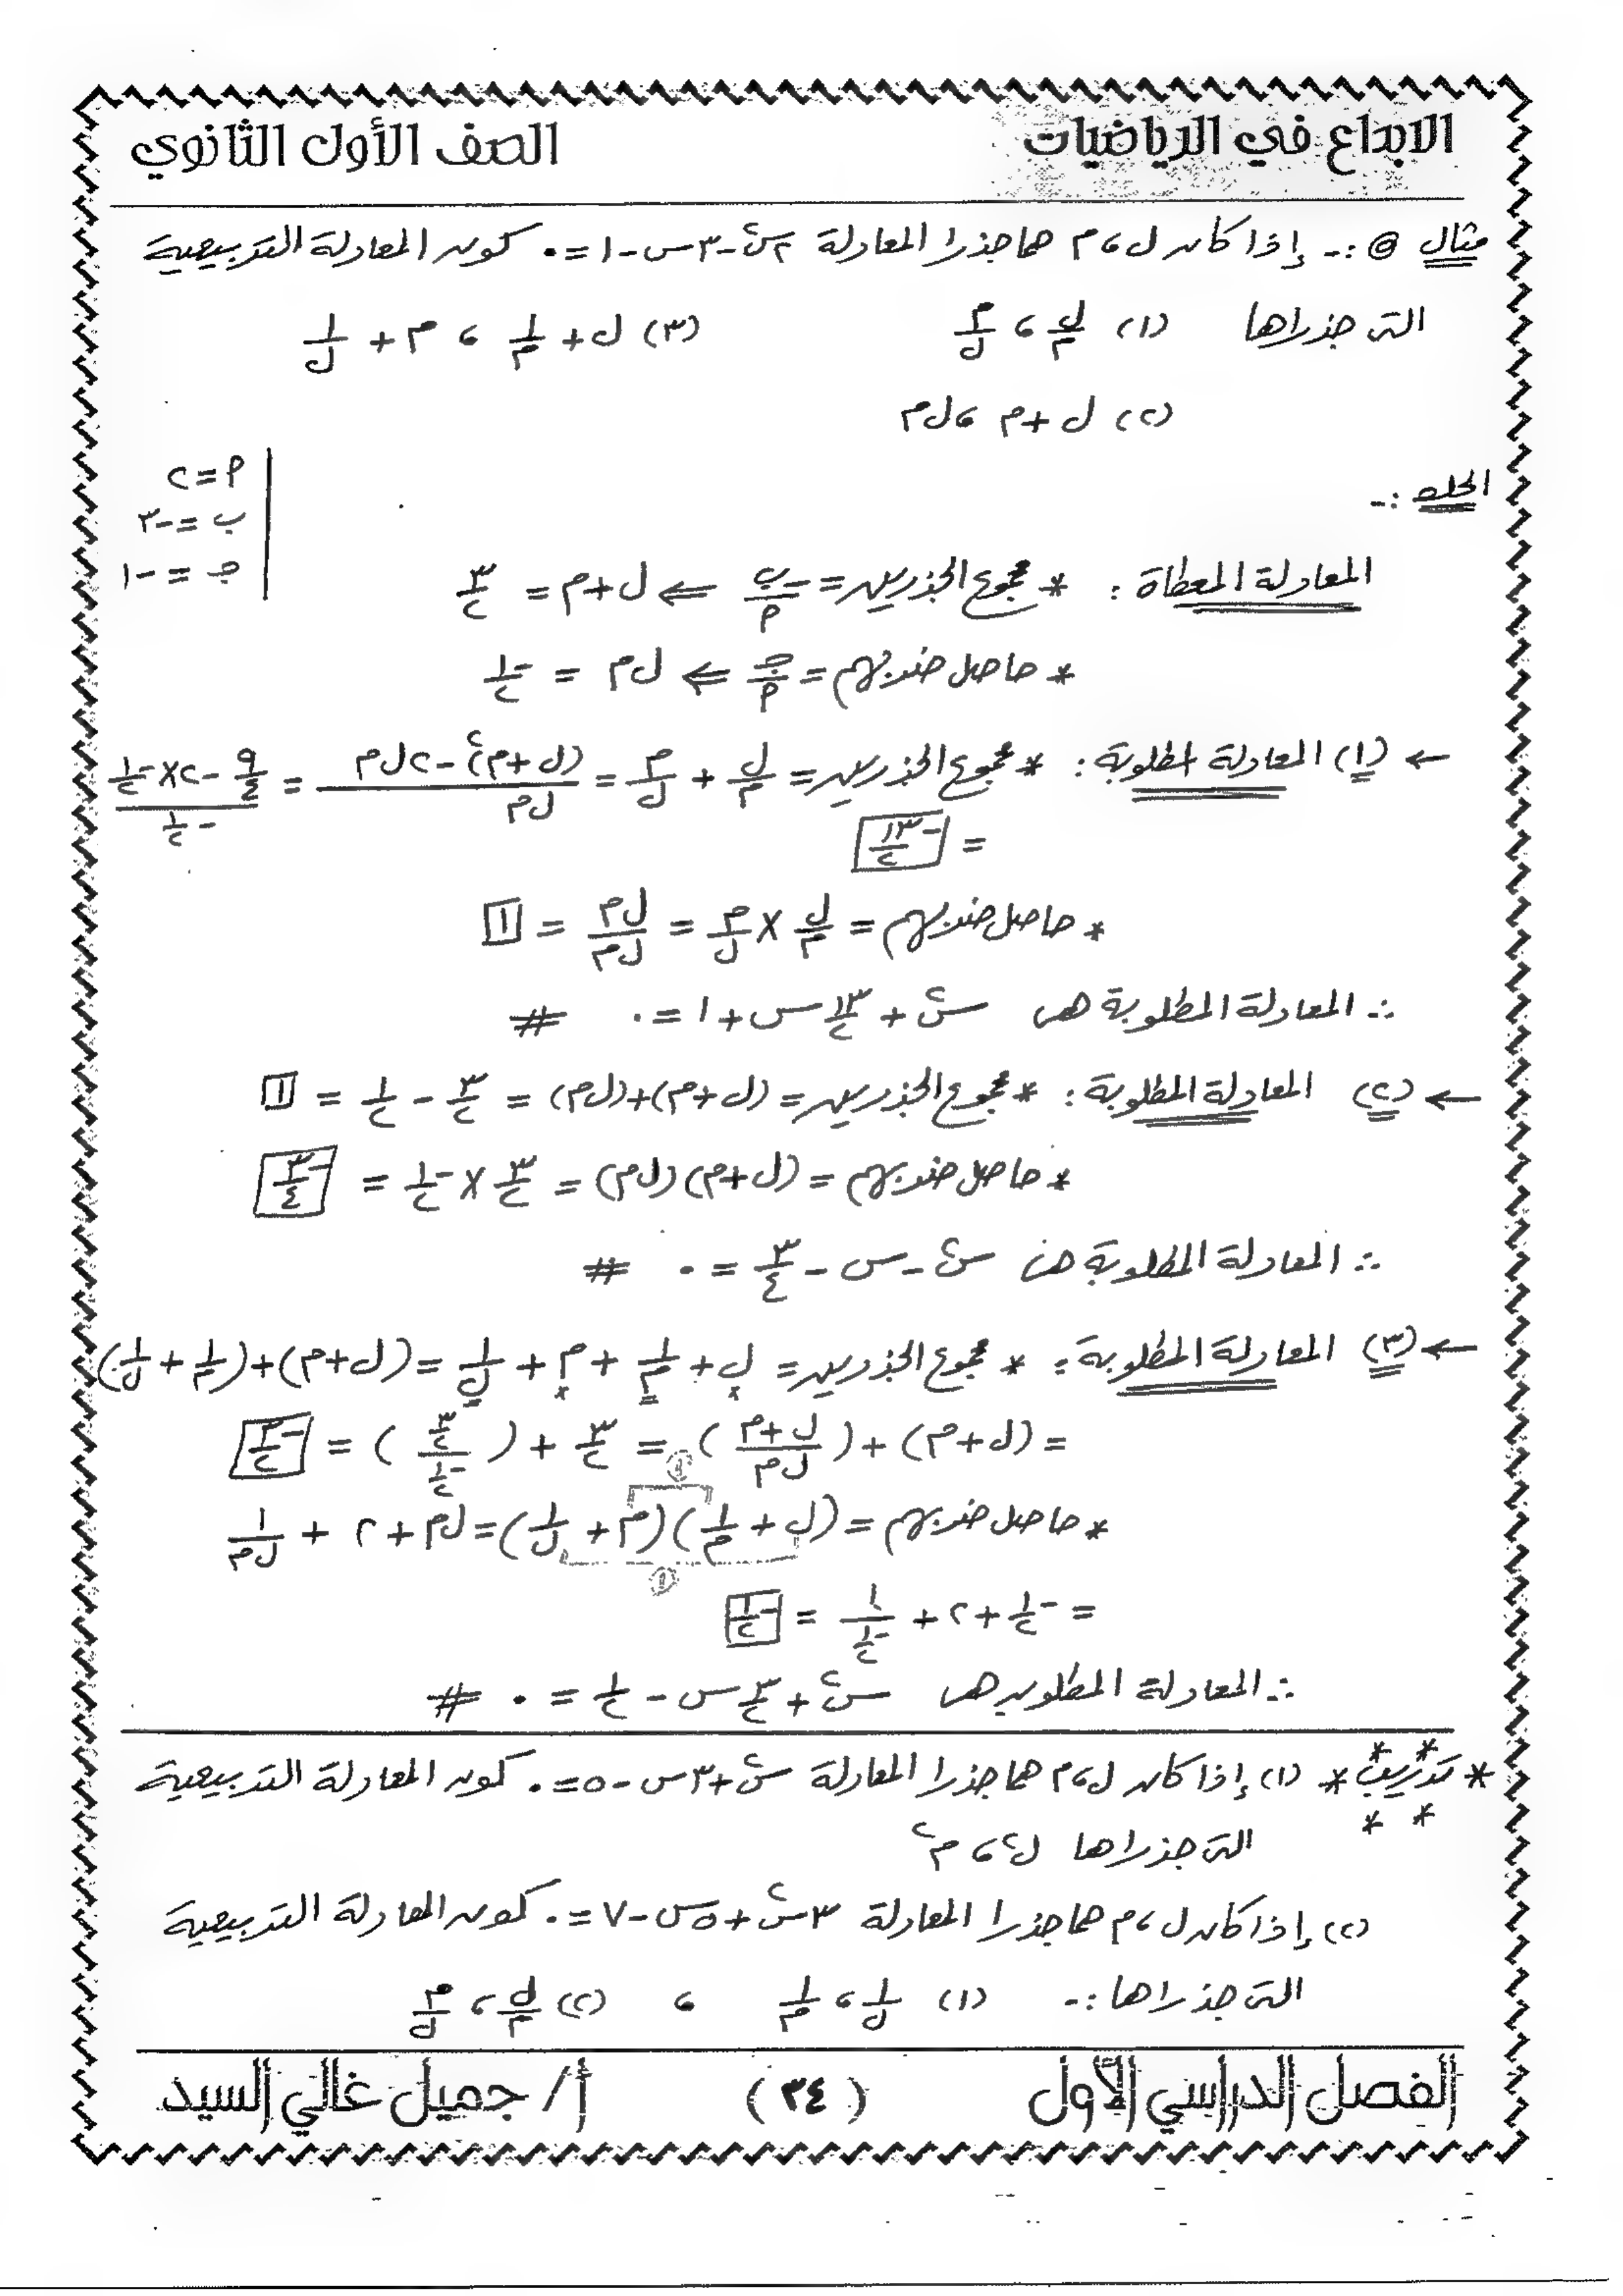 الابداع في الرياضيات
الصف الأول الثانوي
مثال ٥ :- إذا كان ل ، م هما جذرا المعادلة ٢س² - ٣س - ١ = ٠ كون المعادلة التربيعية
التى جذراها (١) ل/م ، م/ل (٣) ل + ١/م ، م + ١/ل
(٢) ل + م ، ل م
الحل :-
أ = ٢
ب = -٣
جـ = -١
المعادلة المعطاة : * مجموع الجذرين = -ب/أ ⇐ ل + م = ٣/٢
* حاصل ضربهم = جـ/أ ⇐ ل م = -١/٢
← (١) المعادلة المطلوبة : * مجموع الجذرين = ل/م + م/ل = ((ل + م)² - ٢ ل م)/(ل م) = (٩/٤ - ٢ × -١/٢)/(-١/٢)
= -١٣/٢
* حاصل ضربهم = ل/م × م/ل = ل م/ل م = ١
∴ المعادلة المطلوبة هى س² + ١٣/٢ س + ١ = ٠ #
← (٢) المعادلة المطلوبة : * مجموع الجذرين = (ل + م) + (ل م) = ٣/٢ - ١/٢ = ١
* حاصل ضربهم = (ل + م) (ل م) = ٣/٢ × -١/٢ = -٣/٤
∴ المعادلة المطلوبة هى س² - س - ٣/٤ = ٠ #
← (٣) المعادلة المطلوبة : * مجموع الجذرين = ل + ١/م + م + ١/ل = (ل + م) + (١/م + ١/ل)
= (ل + م) + ((ل + م)/(ل م)) = ٣/٢ + ((٣/٢)/(-١/٢)) = -٣/٢
* حاصل ضربهم = (ل + ١/م) (م + ١/ل) = ل م + ٢ + ١/(ل م)
= -١/٢ + ٢ + ١/(-١/٢) = -١/٢
∴ المعادلة المطلوبه هى س² + ٣/٢ س - ١/٢ = ٠ #
* تدريب * (١) إذا كان ل ، م هما جذرا المعادلة س² + ٣س - ٥ = ٠ كون المعادلة التربيعية
التى جذراها ل² ، م²
(٢) إذا كان ل ، م هما جذرا المعادلة ٣س² + ٥س - ٧ = ٠ كون المعادلة التربيعية
التى جذراها :- (١) ١/ل ، ١/م ، (٢) ل/م ، م/ل
الفصل الدراسي الأول
( ٣٤ )
أ/ جميل غالي السيد